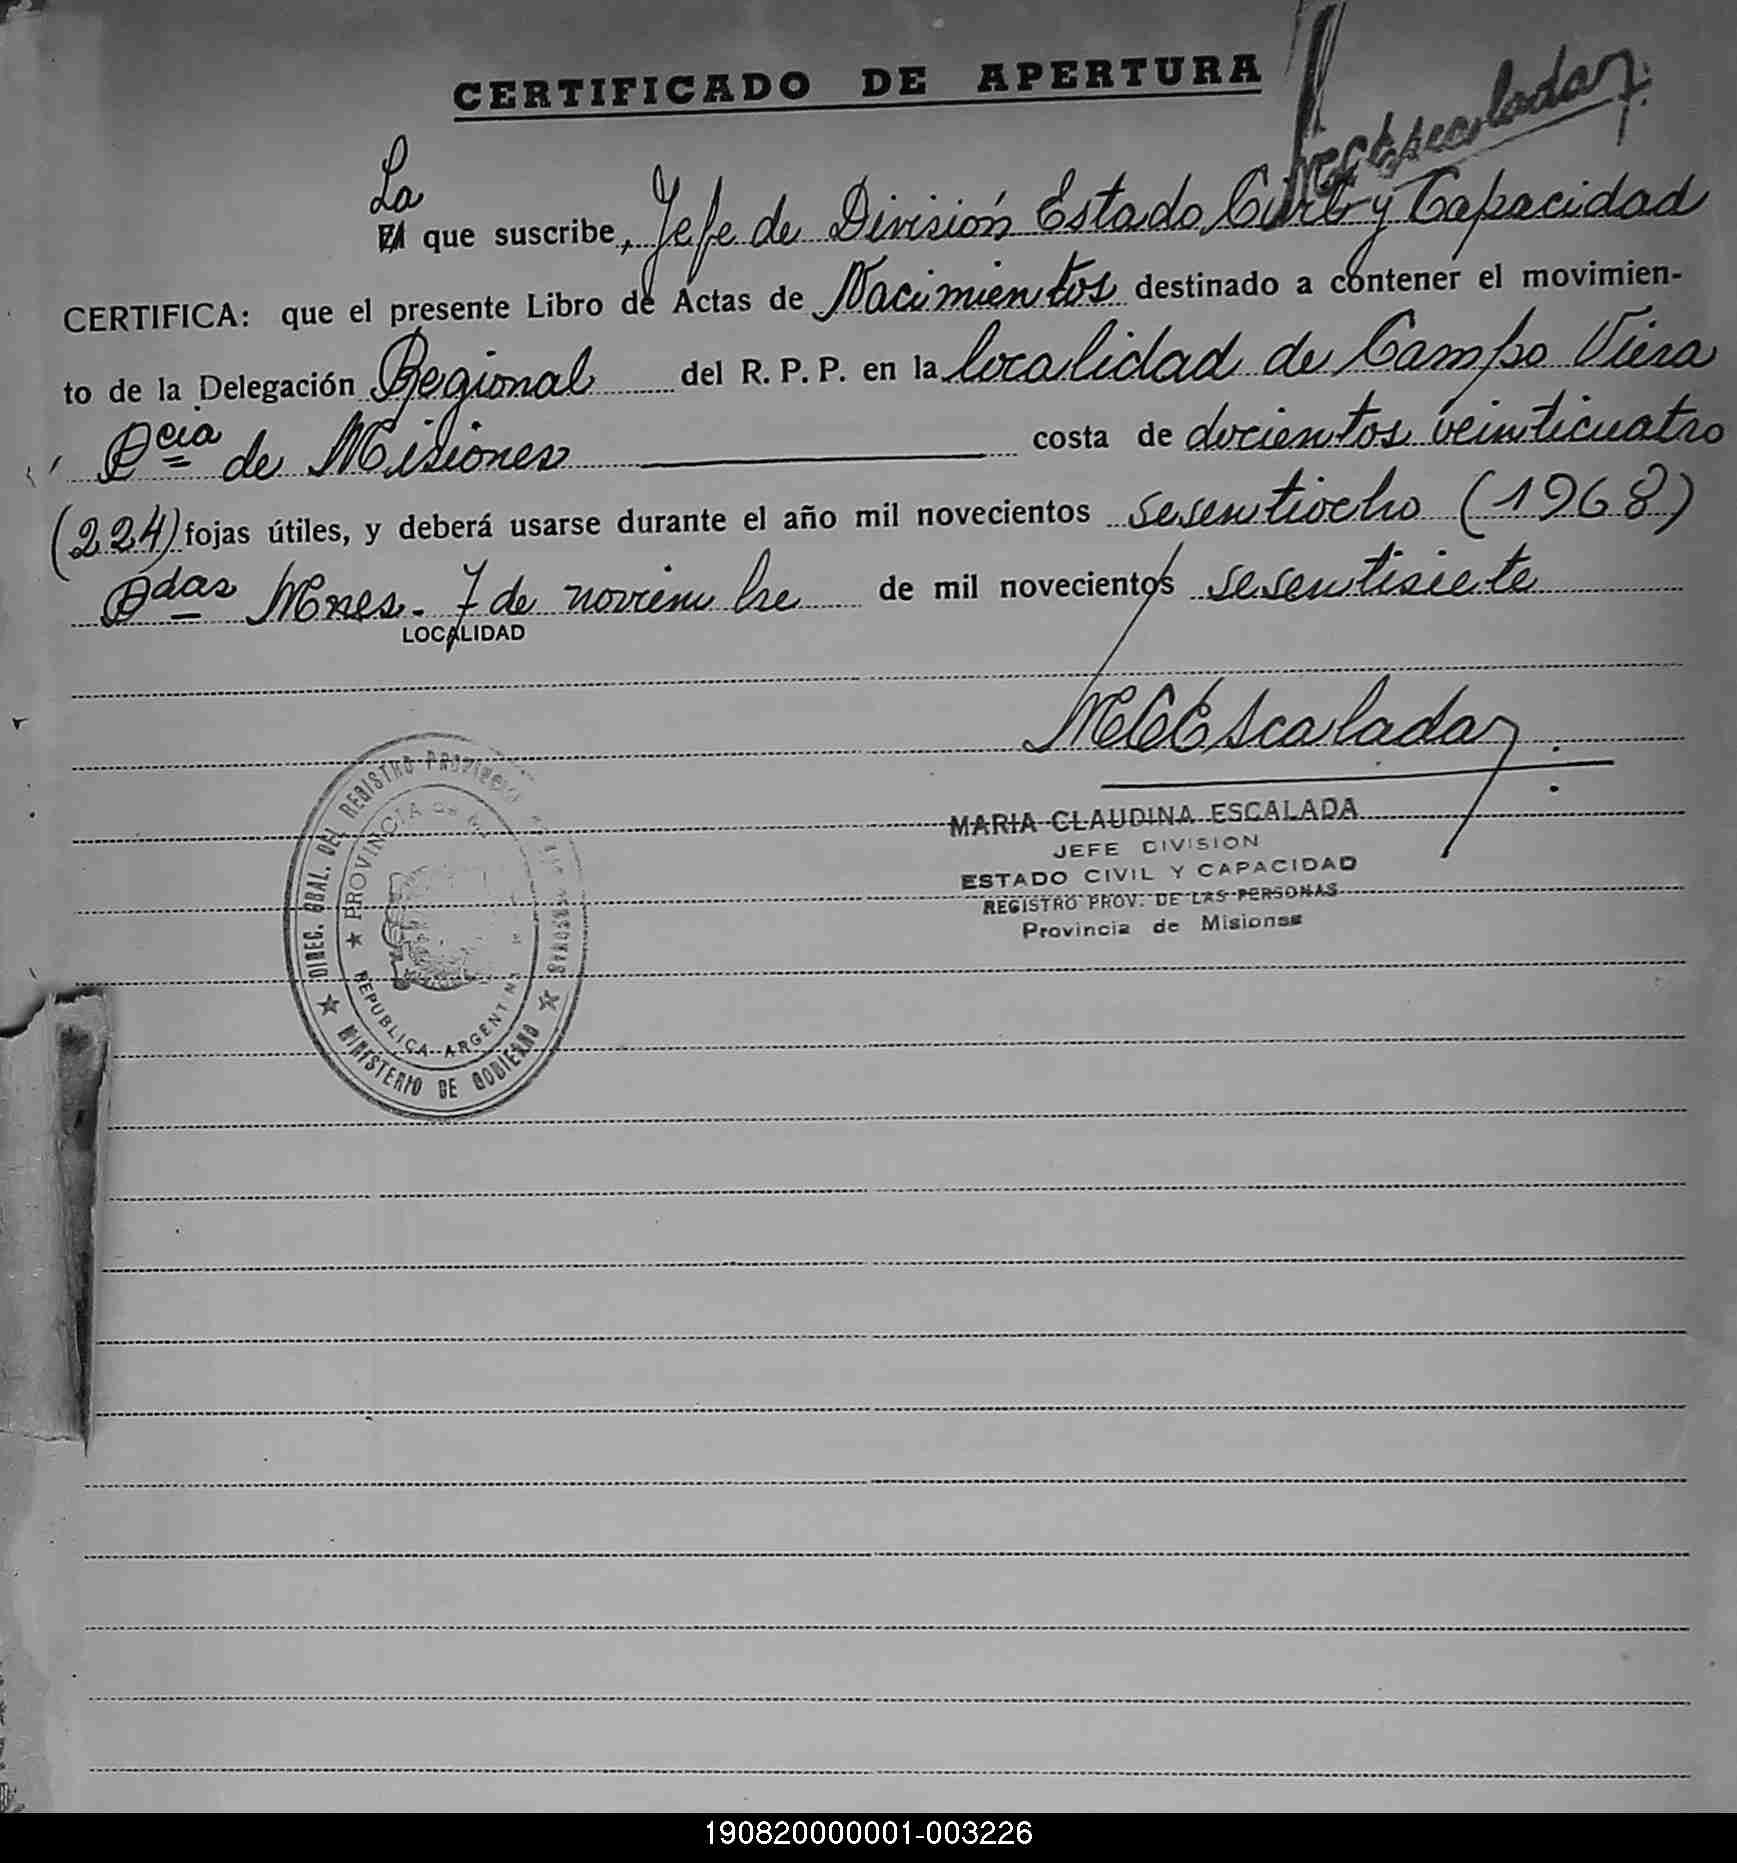 CERTIFICADO DE APERTURA
MCEscalada
La
El que suscribe, Jefe de División Estado Civil y Capacidad
CERTIFICA: que el presente Libro de Actas de Nacimientos destinado a contener el movimien-
to de la Delegación Regional del R. P. P. en la localidad de Campo Viera
Pcia de Misiones costa de docientos veinticuatro
(224) fojas útiles, y deberá usarse durante el año mil novecientos sesentiocho (1968)
Pdas Mnes. 7 de noviembre de mil novecientos sesentisiete
LOCALIDAD
MCEscalada
MARIA CLAUDINA ESCALADA
JEFE DIVISION
ESTADO CIVIL Y CAPACIDAD
REGISTRO PROV. DE LAS PERSONAS
Provincia de Misiones
DIREC. GRAL. DEL REGISTRO PROVINCIAL DE LAS PERSONAS
MINISTERIO DE GOBIERNO
PROVINCIA DE
REPUBLICA ARGENTINA
190820000001-003226